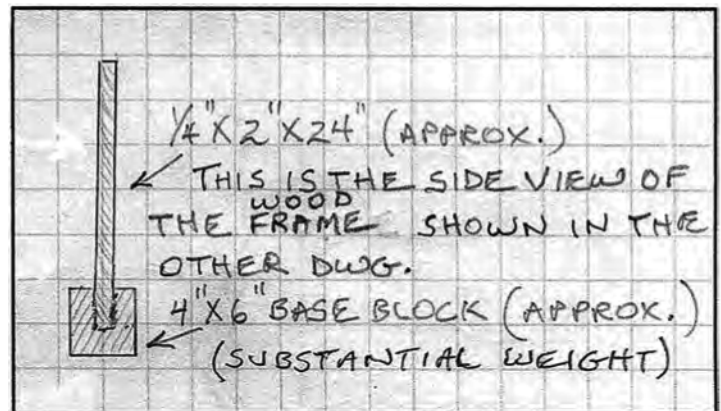 1/4" X 2" X 24" (APPROX.)
THIS IS THE SIDE VIEW OF
THE WOOD FRAME SHOWN IN THE
OTHER DWG.
4" X 6" BASE BLOCK (APPROX.)
(SUBSTANTIAL WEIGHT)